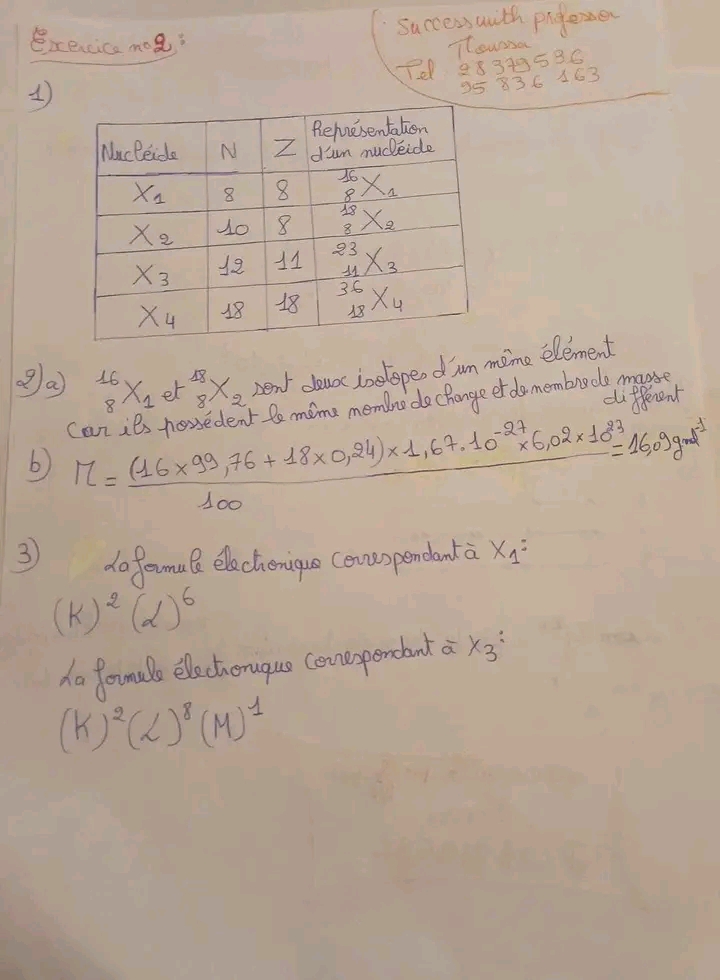 Exercice no2:
Success with professor
Moussa
Tel 28379536
95 836 163
1)
Nucléide N Z Représentation d'un nucléide
X1 8 8 16 8 X1
X2 10 8 18 8 X2
X3 12 11 23 11 X3
X4 18 18 36 18 X4
2) a) 16 8 X1 et 18 8 X2 sont deux isotopes d'un même élément
car ils possédent le même nombre de charge et de nombre de masse
différent
b) M = (16 x 99,76 + 18 x 0,24) x 1,67.10^-27 x 6,02 x 10^23 / 100 = 16,09 g mol^-1
3) La formule électronique correspondant à X1:
(K)^2 (L)^6
La formule électronique correspondant à X3:
(K)^2 (L)^8 (M)^1